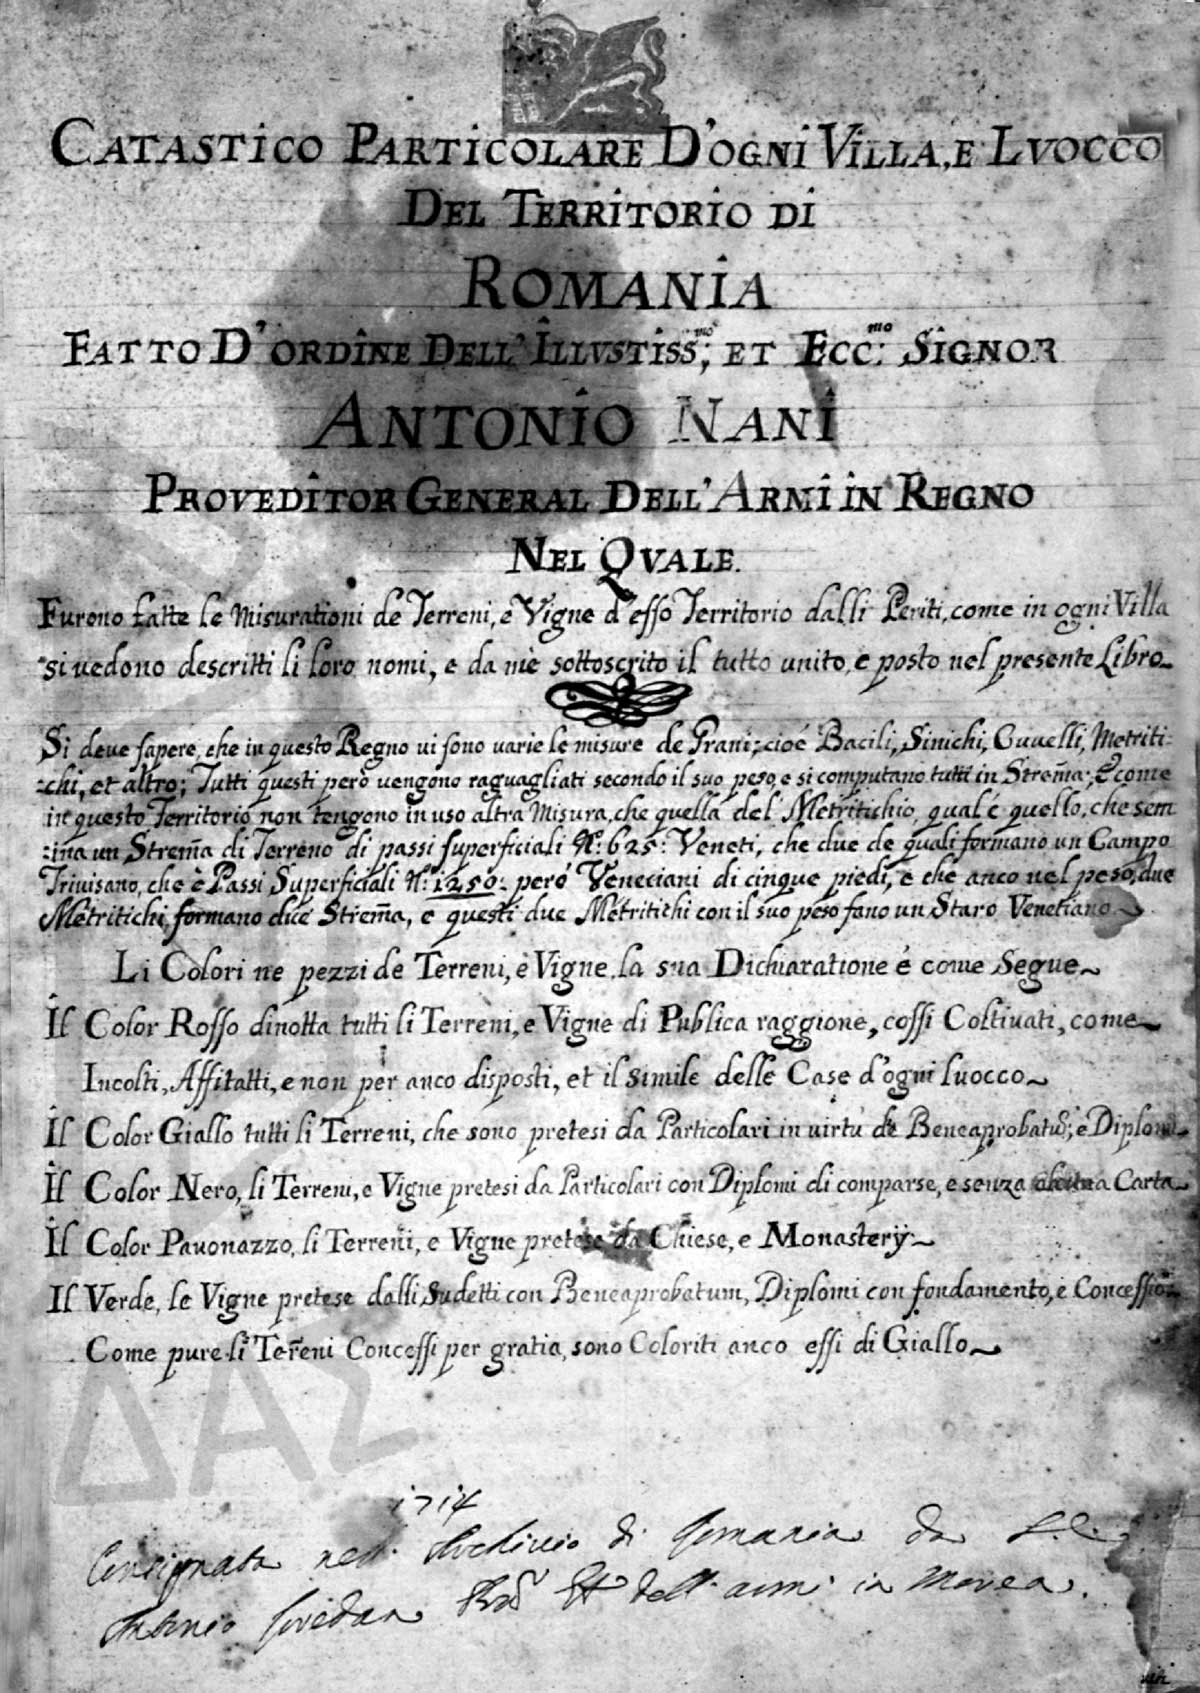 CATASTICO PARTICOLARE D'OGNI VILLA, E LVOCCO
DEL TERRITORIO DI
ROMANIA
FATTO D'ORDINE DELL'ILLVSTISS:mo; ET ECC:mo SIGNOR
ANTONIO NANI
PROVEDITOR GENERAL DELL'ARMI IN REGNO
NEL QVALE.
Furono fatte le Misurationi de Terreni, e Vigne d'esso Territorio dalli Periti, come in ogni Villa
si vedono descritti li loro nomi, e da me sottoscrito il tutto unito, e posto nel presente Libro
Si deve sapere, che in questo Regno vi sono varie le misure de Grani; cioé Bacili, Sinichi, Cuvelli, Metriti:
:chi, et altro; Tutti questi però vengono raguagliati secondo il suo peso, e si computano tutti in Strem̃a; E come
in questo Territorio non tengono in uso altra Misura, che quella del Metritichio, qual é quello, che sem
:ina un Strem̃a di Terreno di passi superficiali N:º 625: Veneti, che due de quali formano un Campo
Trivisano, che è Passi Superficiali N:º 1250: peró Veneciani di cinque piedi, e che anco nel peso, due
Metritichi, formano dice Strem̃a, e questi due Metritichi con il suo peso fano un Staro Venetiano
Li Colori ne pezzi de Terreni, e Vigne, la sua Dichiaratione é come Segue
Il Color Rosso dinotta tutti li Terreni, e Vigne di Publica raggione, cossi Coltivati, come
Incolti, Affitatti, e non per anco disposti, et il simile delle Case d'ogni luocco
Il Color Giallo tutti li Terreni, che sono pretesi da Particolari in virtù de Beneaprobatũ; e Diplomi
Il Color Nero, li Terreni, e Vigne pretesi da Particolari con Diplomi di comparse, e senza alcuna Carta
Il Color Pavonazzo, li Terreni, e Vigne pretese da Chiese, e Monasterÿ
Il Verde, le Vigne pretese dalli Sudetti con Beneaprobatum, Diplomi con fondamento, e Concessio:
Come pure li Terreni Concessi per gratia, sono Coloriti anco essi di Giallo
1714
Consignata nell' Archivio di Romania da S. E.
Antonio Loredan dell'armi in Morea.
ΔΑΣ